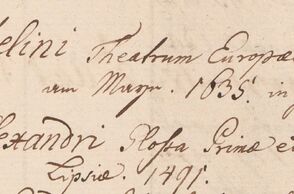 elini Theatrum Europæ
am Mayn. 1635. in
lexandri Glossa Prima e
Lipsiæ. 1491.